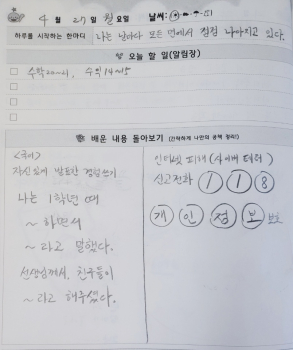 4월 27일 월요일 날씨:
하루를 시작하는 한마디 나는 날마다 모든 면에서 점점 나아지고 있다.
오늘 할 일(알림장)
수학20~21, 수익14~15
배운 내용 돌아보기 (간략하게 나만의 공책 정리!)
<국어>
자신있게 발표한 경험쓰기
나는 1학년 때
~하면서
~라고 말했다.
선생님께서, 친구들이
~라고 해주셨다.
인터넷 피해 (사이버 테러)
신고전화 118
개인정보 보호